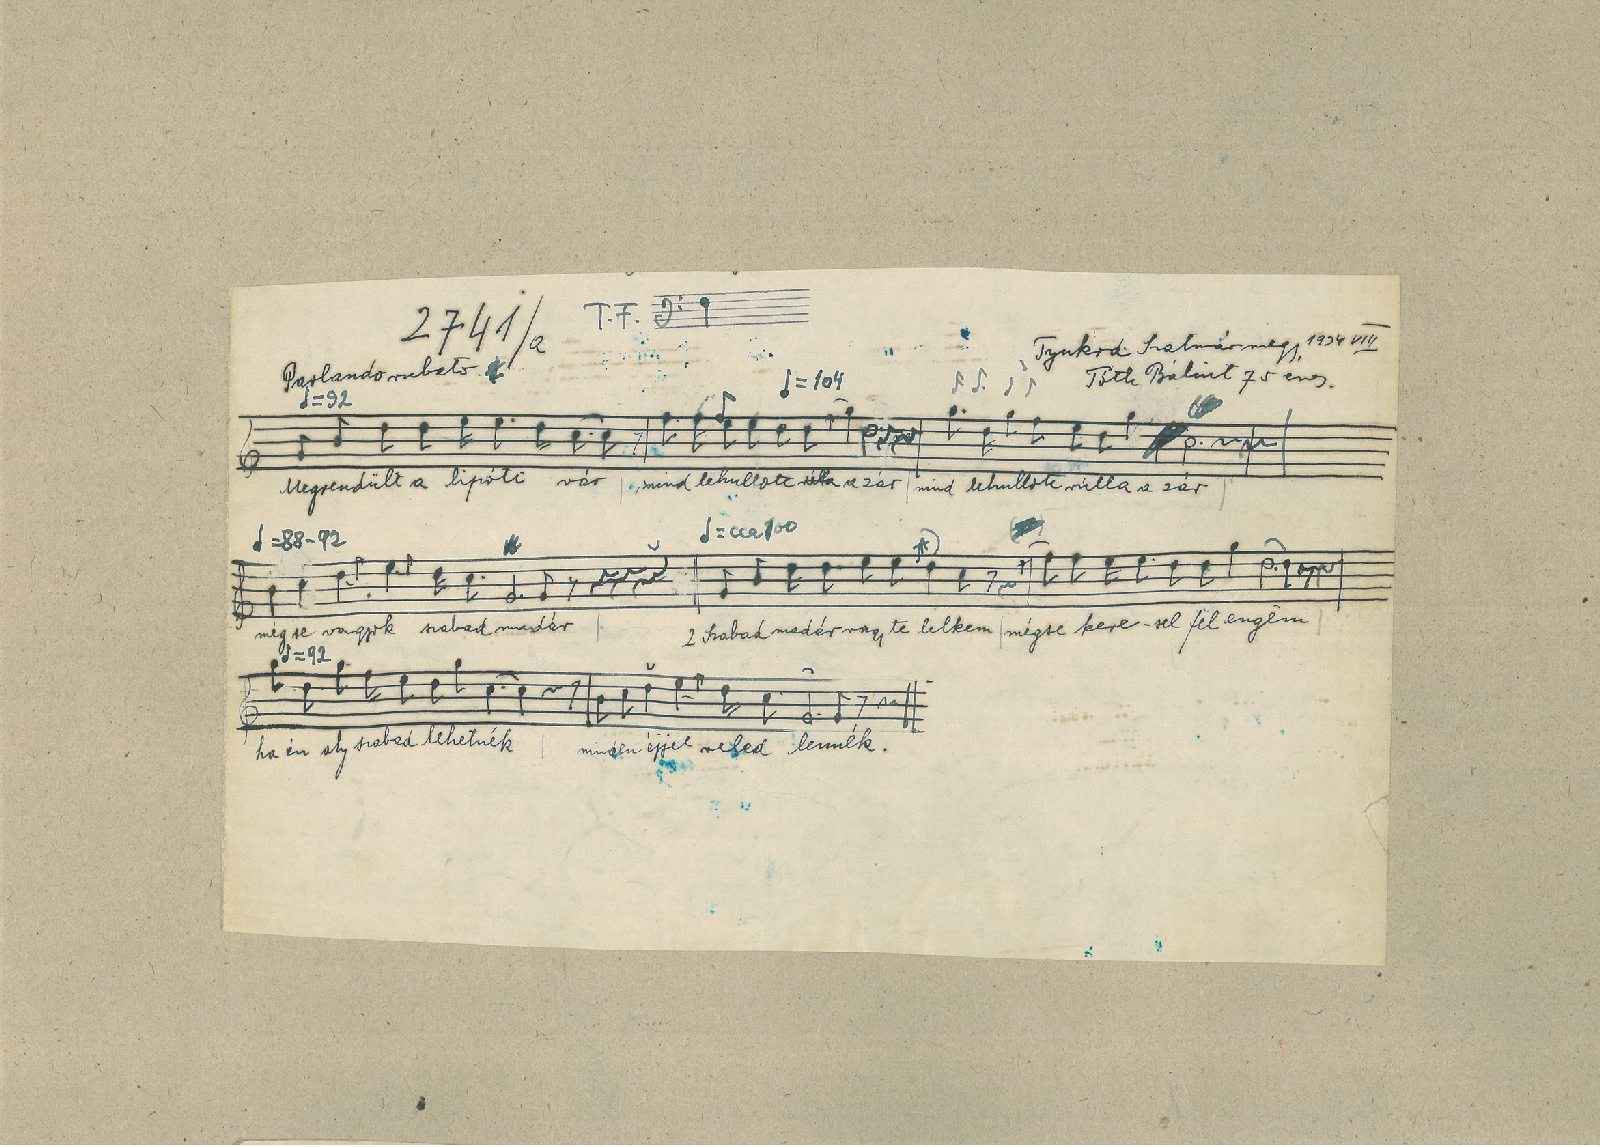 2741/a T.F.
Tyukod Szatmár megy, 1934 VIII
Parlando rubato
Tóth Bálint 75 éves.
♩=92 ♩=104
Megrendült a lipóti vár | mind lehullott a zár | mind lehullott rúlla a zár |
♩=88-92 ♩=cca 100
mégse vagyok szabad madár | 2 Szabad madár vagy te lelkem | mégse kere-sel fel engëm |
♩=92
ha én oly szabad lehetnék | minden éjjel veled lennék.